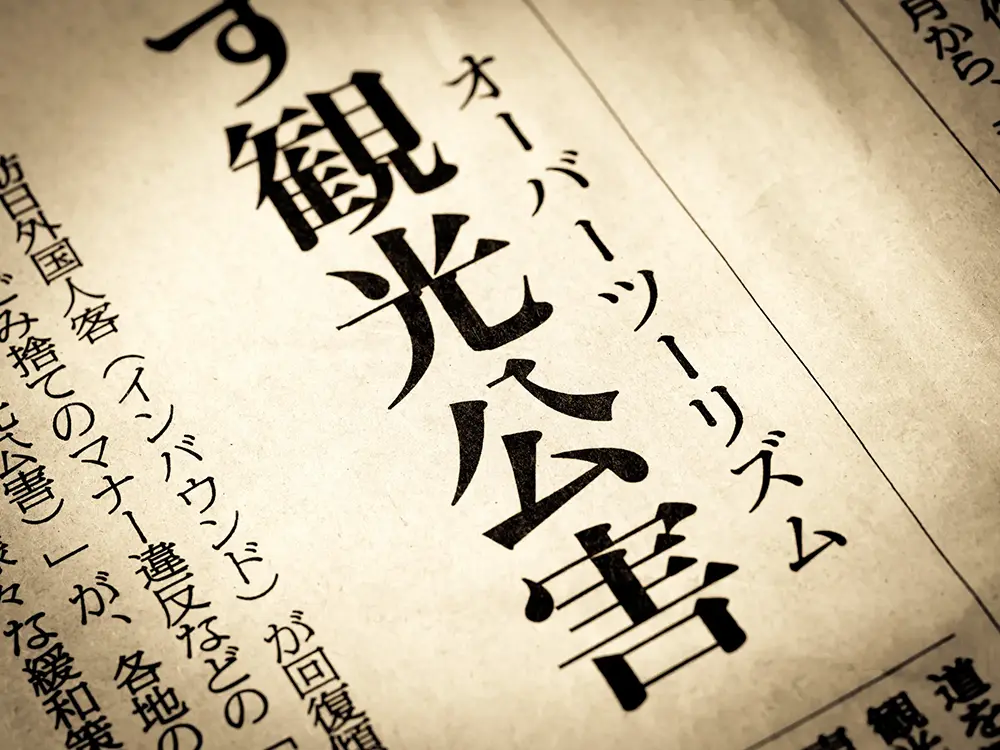 月から、
オーバーツーリズム
す観光公害
訪日外国人客（インバウンド）が回復傾
ごみ捨てのマナー違反などの「
公害）」が、各地の
な緩和策
道を
観光